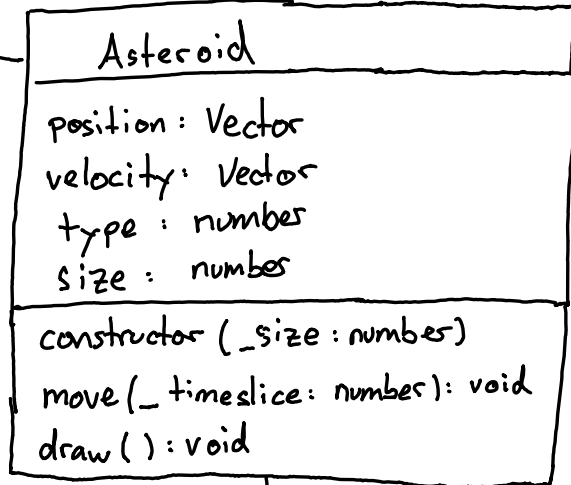 Asteroid
position: Vector
velocity: Vector
type: number
size: number
constructor (_size: number)
move (_timeslice: number): void
draw (): void